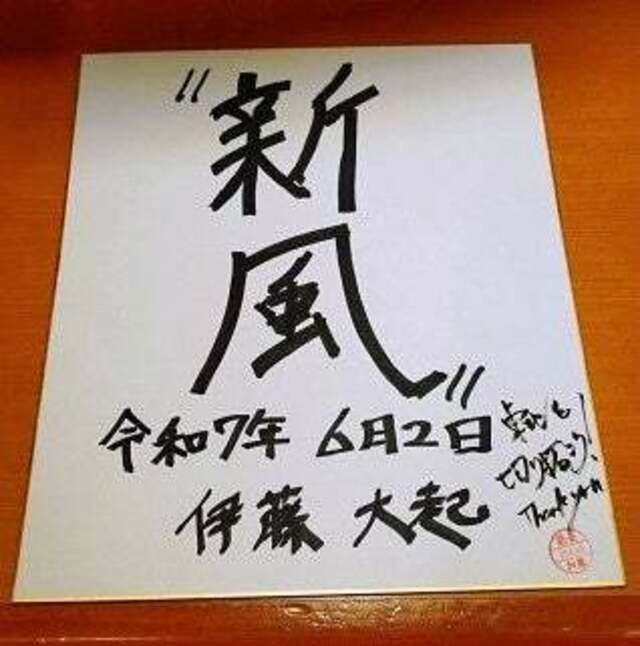 〃新
風〃
令和7年 6月2日
伊藤 大起
切り拓こう!
Thank you